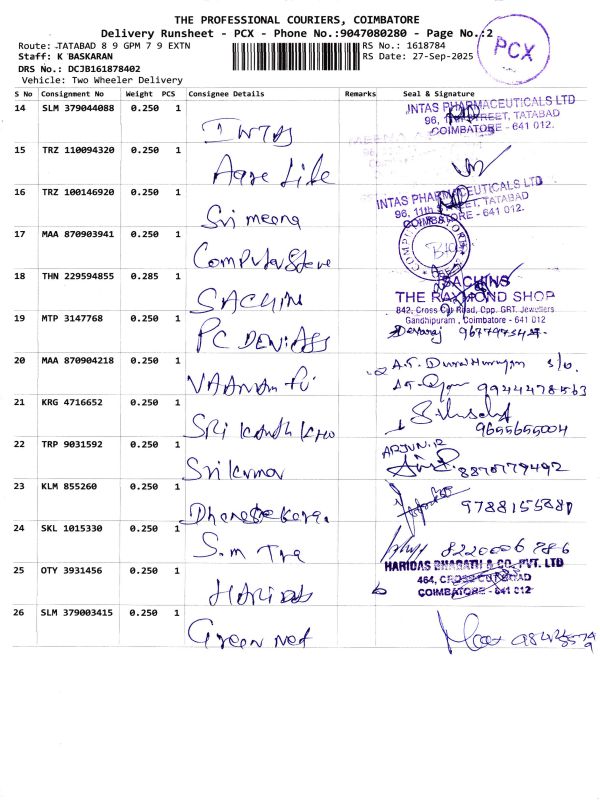 THE PROFESSIONAL COURIERS, COIMBATORE
Delivery Runsheet - PCX - Phone No.:9047080280 - Page No.:2
PCX
Route: TATABAD 8 9 GPM 7 9 EXTN
RS No.: 1618784
Staff: K BASKARAN
RS Date: 27-Sep-2025
DRS No.: DCJB161878402
Vehicle: Two Wheeler Delivery
S No Consignment No Weight PCS Consignee Details Remarks Seal & Signature
14 SLM 379044088 0.250 1 INTAS
INTAS PHARMACEUTICALS LTD
96, STREET, TATABAD
COIMBATORE - 641 012.
15 TRZ 110094320 0.250 1 Agre Life
16 TRZ 100146920 0.250 1 Sri meena
INTAS PHARMACEUTICALS LTD
96, 11th STREET, TATABAD
COIMBATORE - 641 012.
17 MAA 870903941 0.250 1 Computer Store
18 THN 229594855 0.285 1 SACHIN
SACHINS
THE RAYMOND SHOP
842, Cross Cut Road, Opp. GRT. Jewellers
Gandhipuram, Coimbatore - 641 012
19 MTP 3147768 0.250 1 PC
Devaraj
20 MAA 870904218 0.250 1
S/o.
9944478563
21 KRG 4716652 0.250 1 Sri
9655655004
22 TRP 9031592 0.250 1 Srikumar
ARJUN.R
8870779492
23 KLM 855260 0.250 1
24 SKL 1015330 0.250 1 S.m Tra
8220006786
25 OTY 3931456 0.250 1 HARIDAS
HARIDAS BHAGATH & CO. PVT. LTD
464, CROSS CUT ROAD
COIMBATORE - 641 012
26 SLM 379003415 0.250 1 Green net